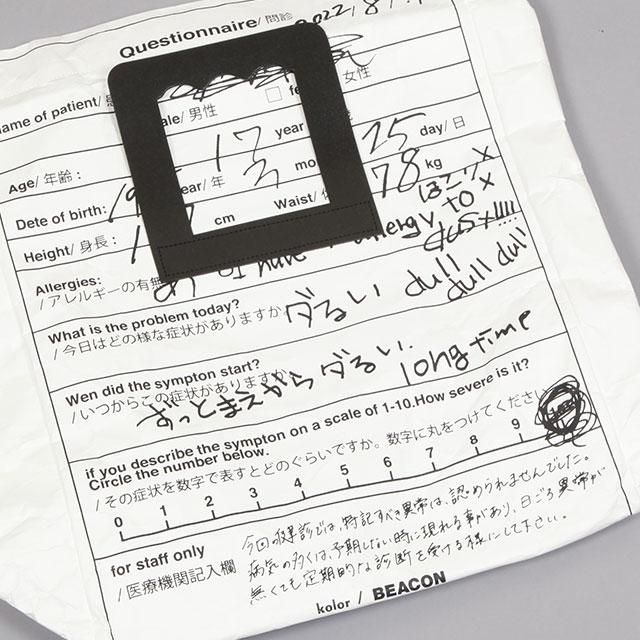 Questionnaire/ 問診
2022/8/
name of patient/
ale/ 男性
fe
女性
Age/ 年齢:
17
year
Dete of birth: 19
ear/ 年
3
mo
25
day/ 日
Height/ 身長: 1
cm
Waist/
78
kg
Allergies:
/アレルギーの有無
I have
energy to
ほこり x
dust x!!!!
What is the problem today?
/今日はどの様な症状がありますか
ダるい dull
dull dull
Wen did the sympton start?
/いつからこの症状がありますか
ずっとまえからダるい. long time
if you describe the sympton on a scale of 1-10.How severe is it?
Circle the number below.
/その症状を数字で表すとどのぐらいですか。数字に丸をつけてください
0 1 2 3 4 5 6 7 8 9
for staff only
/医療機関記入欄
今回の健診では、特記すべき異常は、認められませんでした。
病気の多くは、予期しない時に現れる事があり、日ごろ異常が
無くても定期的な診断を受ける様にして下さい。
kolor / BEACON